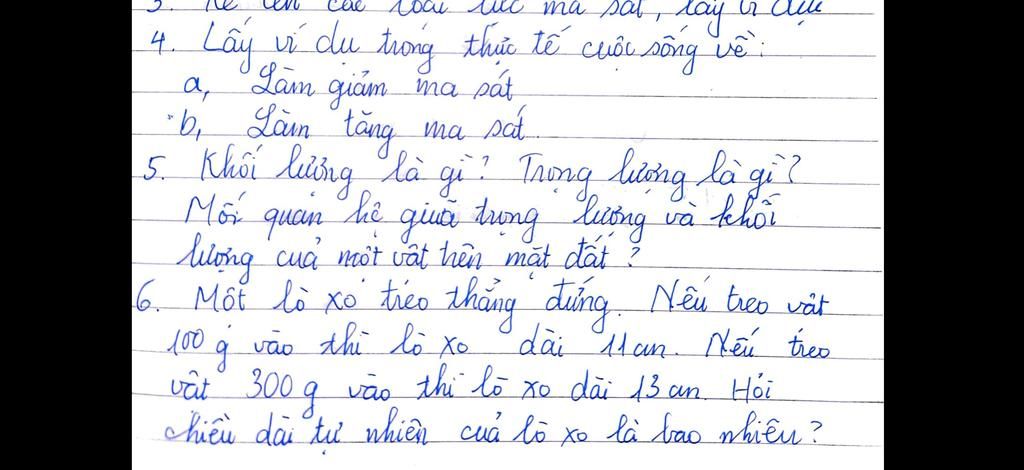 3. Kể tên các loại lực ma sát, lấy ví dụ
4. Lấy ví dụ trong thực tế cuộc sống về:
a, Làm giảm ma sát
b, Làm tăng ma sát.
5. Khối lượng là gì? Trọng lượng là gì?
Mối quan hệ giữa trọng lượng và khối
lượng của một vật trên mặt đất?
6. Một lò xo treo thẳng đứng. Nếu treo vật
100 g vào thì lò xo dài 11 cm. Nếu treo
vật 300 g vào thì lò xo dài 13 cm. Hỏi
chiều dài tự nhiên của lò xo là bao nhiêu?